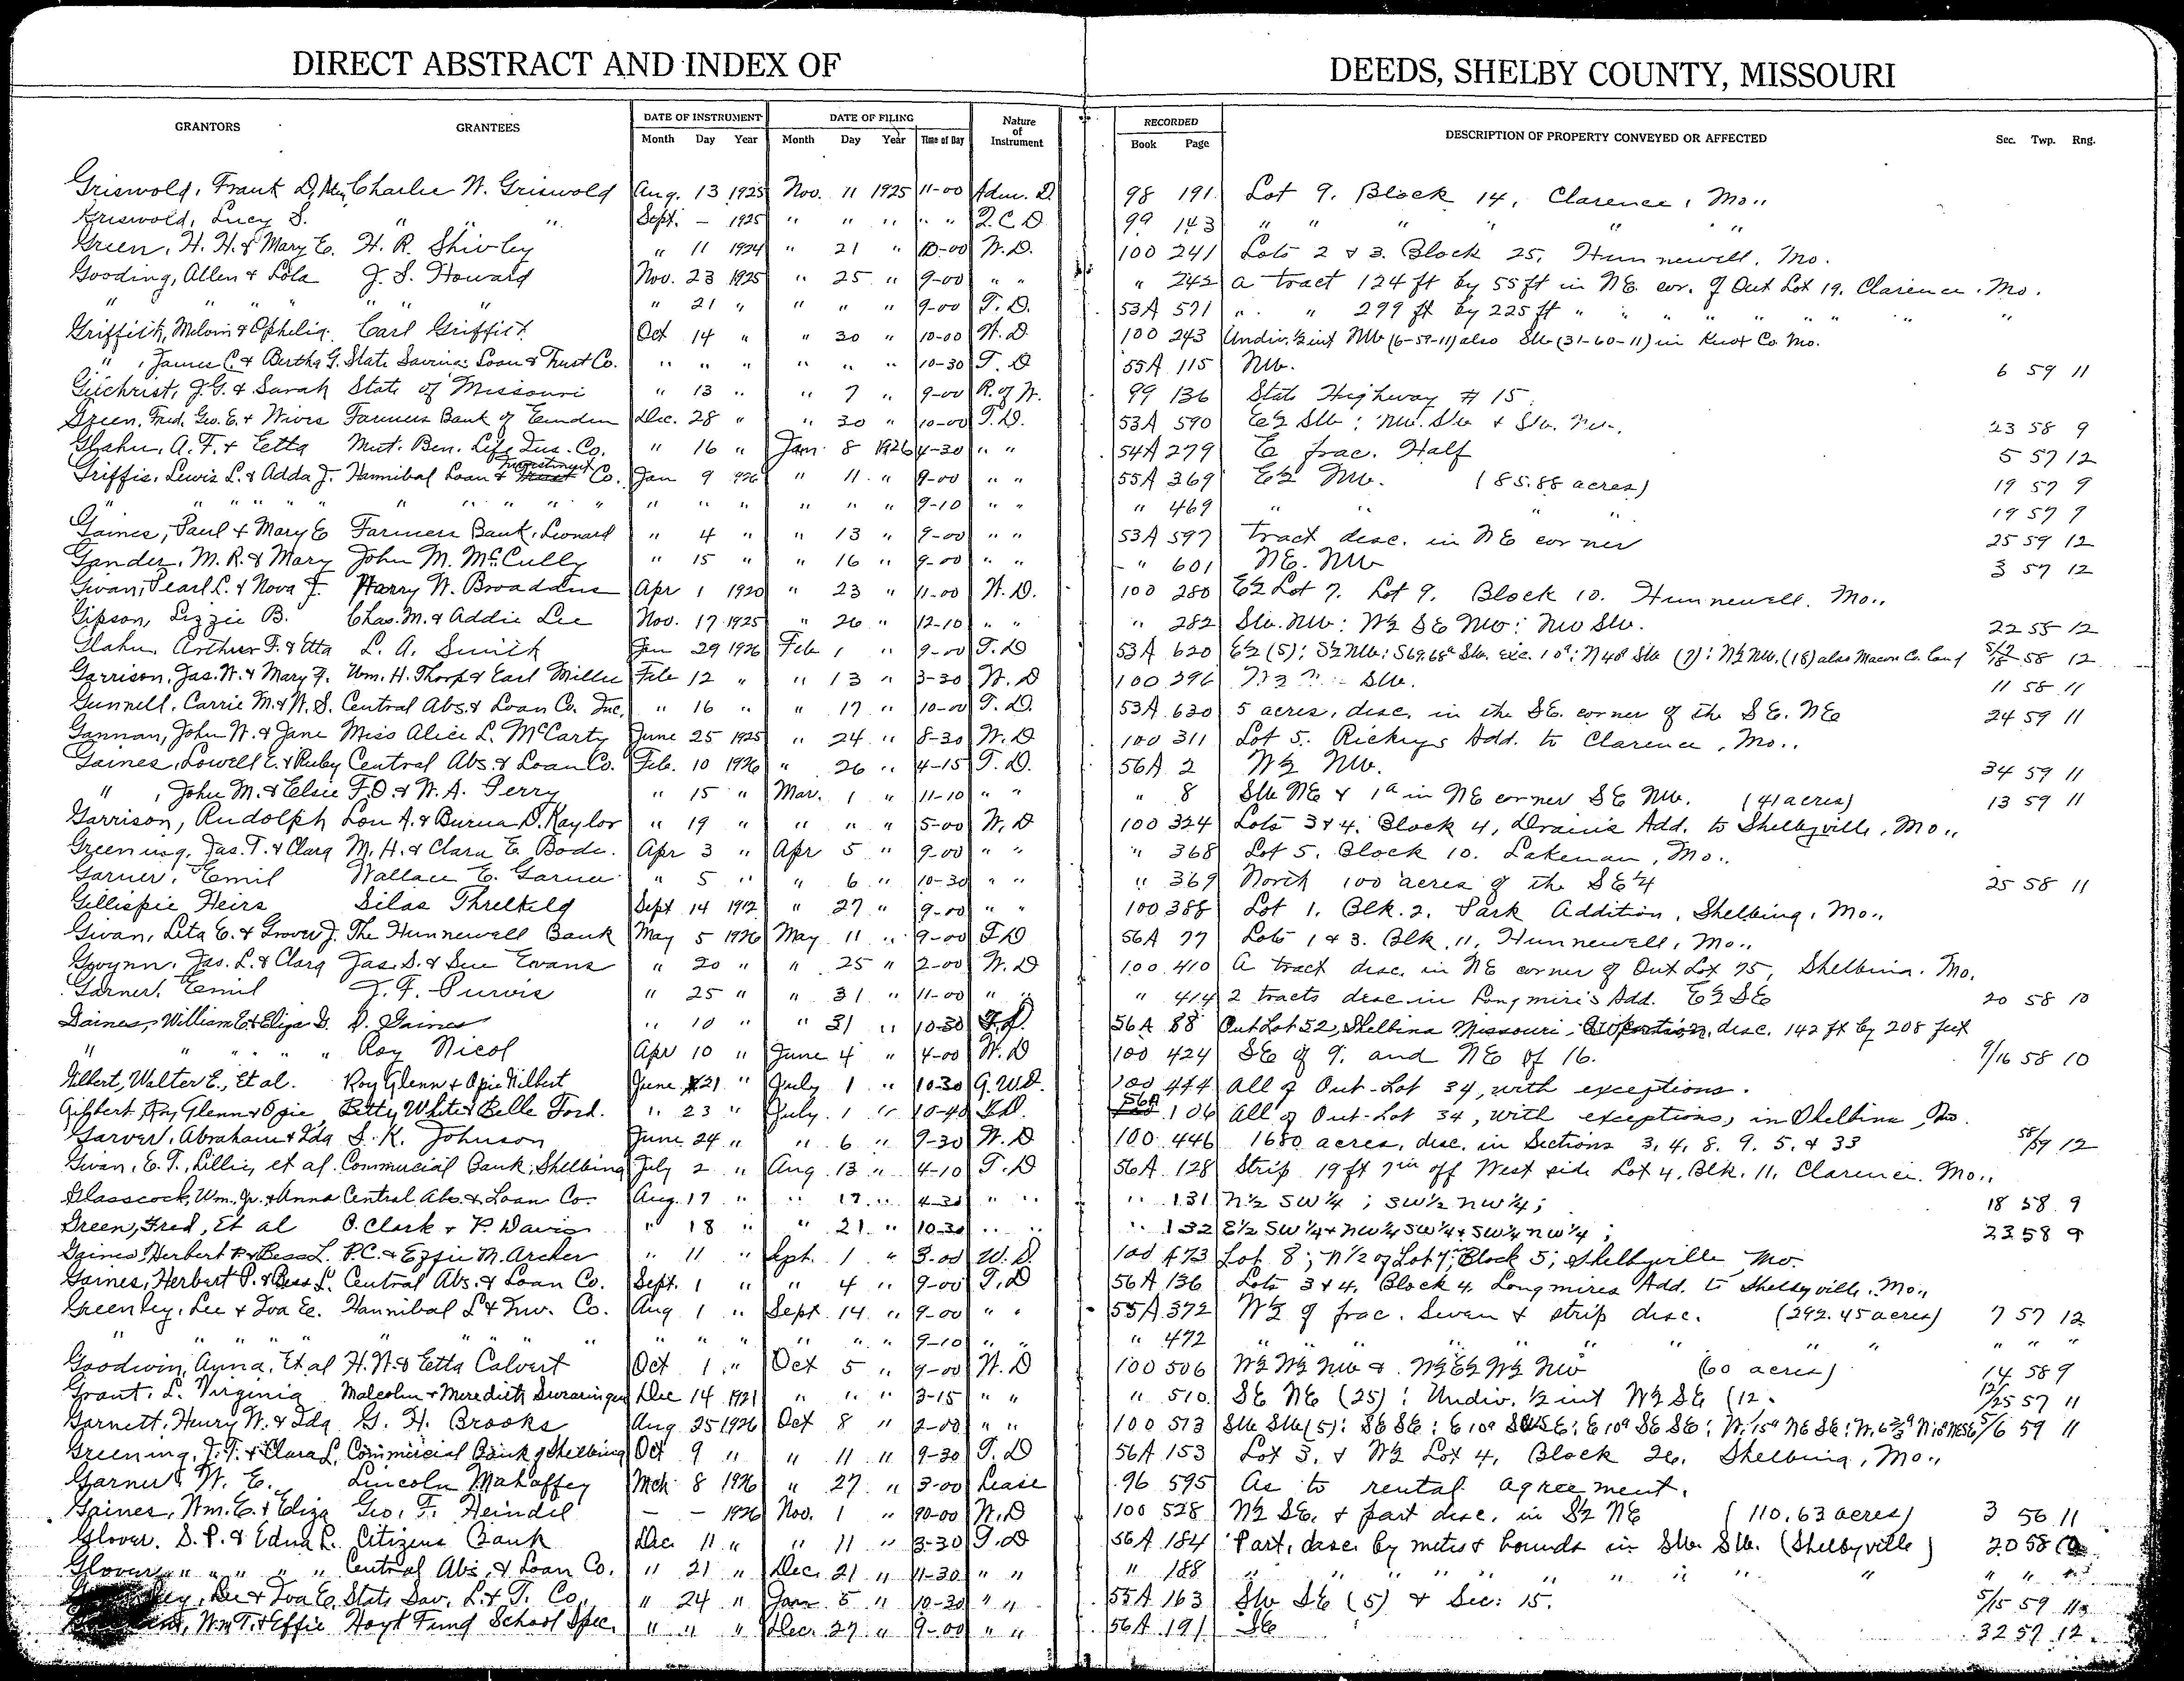 DIRECT ABSTRACT AND INDEX OF DEEDS, SHELBY COUNTY, MISSOURI
GRANTORS GRANTEES DATE OF INSTRUMENT DATE OF FILING Nature of Instrument RECORDED DESCRIPTION OF PROPERTY CONVEYED OR AFFECTED Sec. Twp. Rng.
Month Day Year Month Day Year Time of Day Book Page
Griswold, Frank D, Charlie W. Griswold Aug. 13 1925 Nov. 11 1925 11-00 Adm. D. 98 191 Lot 9, Block 14, Clarence, Mo..
Griswold, Lucy S. " " " Sept. - 1925 " " " " " Q.C.D. 99 143 " " " " " "
Green, H. H. & Mary E. H. R. Shivley " 11 1924 " 21 " 10-00 W.D. 100 241 Lots 2 & 3. Block 25, Hunnewell, Mo.
Gooding, Allen & Lola J. S. Howard Nov. 23 1925 " 25 " 9-00 " " " 242 A tract 124 ft by 55 ft in NE cor. of Out Lot 19. Clarence, Mo.
" " " " " " " " 21 " " " " 9-00 T.D. 53A 571 " " 299 ft by 225 ft " " " " " " " "
Griffith, Melvin & Ophelia Carl Griffith Oct 14 " " 30 " 10-00 W.D. 100 243 Undiv. ½ int NW (6-59-11) also SW (31-60-11) in Knox Co. Mo.
" , James C. & Bertha G. State Savings Loan & Trust Co. " " " " " " 10-30 T.D 55A 115 NW. 6 59 11
Gilchrist, J.G. & Sarah State of Missouri " 13 " " 7 " 9-00 R. of W. 99 136 State Highway # 15. 
Green, Fred, Geo. E. & Wives Farmers Bank of Emden Dec. 28 " " 30 " 10-00 T.D. 53A 590 E½ SW; NW. SW & SW. NW. 23 58 9
Glahn, A. F. & Etta Mut. Ben. Life Ins. Co. " 16 " Jan. 8 1926 4-30 " " 54A 279 E frac. Half 5 57 12
Griffis, Lewis L. & Adda J. Hannibal Loan & Investment Co. Jan 9 1926 " 11 " 9-00 " " 55A 369 E½ NW. (85.88 acres) 19 57 9
" " " " " " " " " " " " " " " " 9-10 " " " 469 " " " " 19 57 9
Gaines, Paul & Mary E Farmers Bank, Leonard " 4 " " 13 " 9-00 " " 53A 597 tract desc. in NE corner 25 59 12
Gander, M. R. & Mary John M. McCully " 15 " " 16 " 9-00 " " " 601 NE. NW 3 57 12
Givan, Pearl L. & Nova J. Harry W. Broaddus Apr 1 1920 " 23 " 11-00 W.D. 100 280 E½ Lot 7. Lot 9, Block 10. Hunnewell. Mo..
Gipson, Lizzie B. Chas. M. & Addie Lee Nov. 17 1925 " 26 " 12-10 " " " 282 SW. NW: W½ SE NW: NW SW. 22 58 12
Glahn, Arthur F. & Etta L. A. Smith Jan 29 1926 Feb 1 " 9-00 T.D 53A 620 E½ (5): S½ NW: S69.68ª SW. exc. 10ª: N 40ª SW (7): N½ NW. (18) also Macon Co. land 58 12
Garrison, Jas. W. & Mary F. Wm. H. Thorp & Earl Miller Feb 12 " " 13 " 3-30 W.D 100 296 SW. 11 58 11
Gunnell, Carrie M. & W. S. Central Abs. & Loan Co. Inc. " 16 " " 17 " 10-00 T.D. 53A 630 5 acres, desc. in the SE. corner of the SE. NE 24 59 11
Gannan, John W. & Jane Miss Alice L. McCarty June 25 1925 " 24 " 8-30 W.D 100 311 Lot 5. Rickeys Add. to Clarence, Mo..
Gaines, Lowell E. & Ruby Central Abs. & Loan Co. Feb. 10 1926 " 26 " 4-15 T.D. 56A 2 W½ NW. 34 59 11
" , John M. & Elsie F. O. & W. A. Perry " 15 " Mar. 1 " 11-10 " " " 8 SW NE & 1ª in NE corner SE NW. (41 acres) 13 59 11
Garrison, Rudolph Lou A. & Burua D. Kaylor " 19 " " " " 5-00 W.D 100 324 Lots 3 & 4. Block 4, Drain's Add. to Shelbyville, Mo..
Greening, Jas. T. & Clara M. H. & Clara E. Bode. Apr 3 " Apr 5 " 9-00 " " " 368 Lot 5. Block 10. Lakenan, Mo..
Garner, Emil Wallace E. Garner " 5 " " 6 " 10-30 " " " 369 North 100 acres of the SE¼ 25 58 11
Gillispie Heirs Silas Threlkeld Sept 14 1912 " 27 " 9-00 " " 100 388 Lot 1. Blk. 2, Park Addition, Shelbina, Mo..
Givan, Leta E. & Grover J. The Hunnewell Bank May 5 1926 May 11 " 9-00 T.D 56A 77 Lots 1 & 3. Blk. 11, Hunnewell, Mo..
Gwynn, Jas. L. & Clara Jas. S. & Sue Evans " 20 " " 25 " 2-00 W.D 100 410 A tract desc. in NE corner of Out Lot 75, Shelbina. Mo.
Garner, Emil J. F. Purvis " 25 " " 31 " 11-00 " " " 414 2 tracts desc. in Longmire's Add. E½ SE 20 58 10
Gaines, William E & Eliza G. D. Gaines " 10 " " 31 " 10-30 T.D. 56A 88 Out Lot 52, Shelbina Missouri, desc. 142 ft by 208 feet
" " " " " Roy Nicol Apr 10 " June 4 " 4-00 W.D 100 424 SE of 9. and NE of 16. 9/16 58 10
Gilbert, Walter E., Et al. Roy Glenn & Opie Gilbert June 21 " July 1 " 10-30 G.W.D. 100 444 All of Out-Lot 34, with exceptions.
Gilbert, Roy Glenn & Opie Betty White & Belle Ford. " 23 " July 1 " 10-40 T.D. 56A 106 All of Out-Lot 34, with exceptions, in Shelbina, Mo.
Garver, Abraham & Ida S. K. Johnson June 24 " " 6 " 9-30 W.D 100 446 1680 acres, desc. in Sections 3, 4, 8. 9. 5, & 33 58/59 12
Givan, E. T., Lillie, et al. Commercial Bank, Shelbina July 2 " Aug 13 " 4-10 T.D 56A 128 Strip 19 ft 7 in off West side Lot 4, Blk. 11, Clarence. Mo..
Glasscock, Wm. Jr. & Anna Central Abs. & Loan Co. Aug. 17 " " 17 " 4-30 " " " 131 N½ SW¼; SW½ NW¼; 18 58 9
Green, Fred, Et al O. Clark & P. Davis " 18 " " 21 " 10-30 " " " 132 E½ SW¼ & NW¼ SW¼ & SW¼ NW¼; 23 58 9
Gaines Herbert P & Bess L. P.C. & Ezzie M. Archer " 11 " Sept. 1 " 3-00 W.D. 100 473 Lot 8; N 1/2 of Lot 7; Block 5; Shelbyville, Mo.
Gaines, Herbert P. & Bess L. Central Abs. & Loan Co. Sept. 1 " " 4 " 9-00 T.D 56A 136 Lots 3 & 4, Block 4, Longmires Add. to Shelbyville, Mo..
Greenley, Lee & Iva E. Hannibal L & Inv. Co. Aug 1 " Sept 14 " 9-00 " " 55A 372 W½ of frac. Seven & strip desc. (292.45 acres) 7 57 12
" " " " " " " " " " " " " " 9-10 " " " 472 " " " " " " " " "
Goodwin, Anna, Et al H. W. & Etta Calvert Oct 1 " Oct 5 " 9-00 W.D 100 506 W½ W½ NW & W½ E½ W½ NW (60 acres) 14 58 9
Grant, L. Virginia Malcolm & Meredith Swearingen Dec 14 1921 " " " 3-15 " " " 510 SE NE (25): Undiv. ½ int W½ SE (12. 12/25 57 11
Garnett, Henry W. & Ida G. H. Brooks Aug 25 1926 Oct 8 " 2-00 " " 100 513 SW SW (5): SE SE: E 10ª SW SE: E 10ª SE SE: W. 15ª NE SE: 5/6 59 11
Greening, J. T. & Clara L. Commercial Bank of Shelbina Oct 9 " " 11 " 9-30 T.D 56A 153 Lot 3. & W½ Lot 4, Block 26. Shelbina, Mo..
Garner, W. E. Lincoln Mahaffey Mch 8 1926 " 27 " 3-00 Lease 96 595 As to rental agreement.
Gaines, Wm. E. & Eliza Geo. F. Heindel - - 1926 Nov. 1 " W.D 100 528 W½ SE. & part desc. in S½ NE (110.63 acres) 3 56 11
Glover, S. P. & Edna L. Citizens Bank Dec. 11 " " 11 " 3-30 T.D 56A 184 Part, desc. by metes & bounds in SW. SW. (Shelbyville) 20 58 10
Glover " " " " Central Abs. & Loan Co. " 21 " Dec. 21 " 11-30 " " " 188 " " " " " " " " " " " "
Lee & Iva E. State Sav. L. & T. Co. " 24 " Jan 5 " 10-30 " " 55A 163 SW SE (5) & Sec: 15. 5/15 59 11
Wm T. & Effie Hoyt Fund School Spec. " " " Dec. 27 " 9-00 " " 56A 191 SE 32 57 12